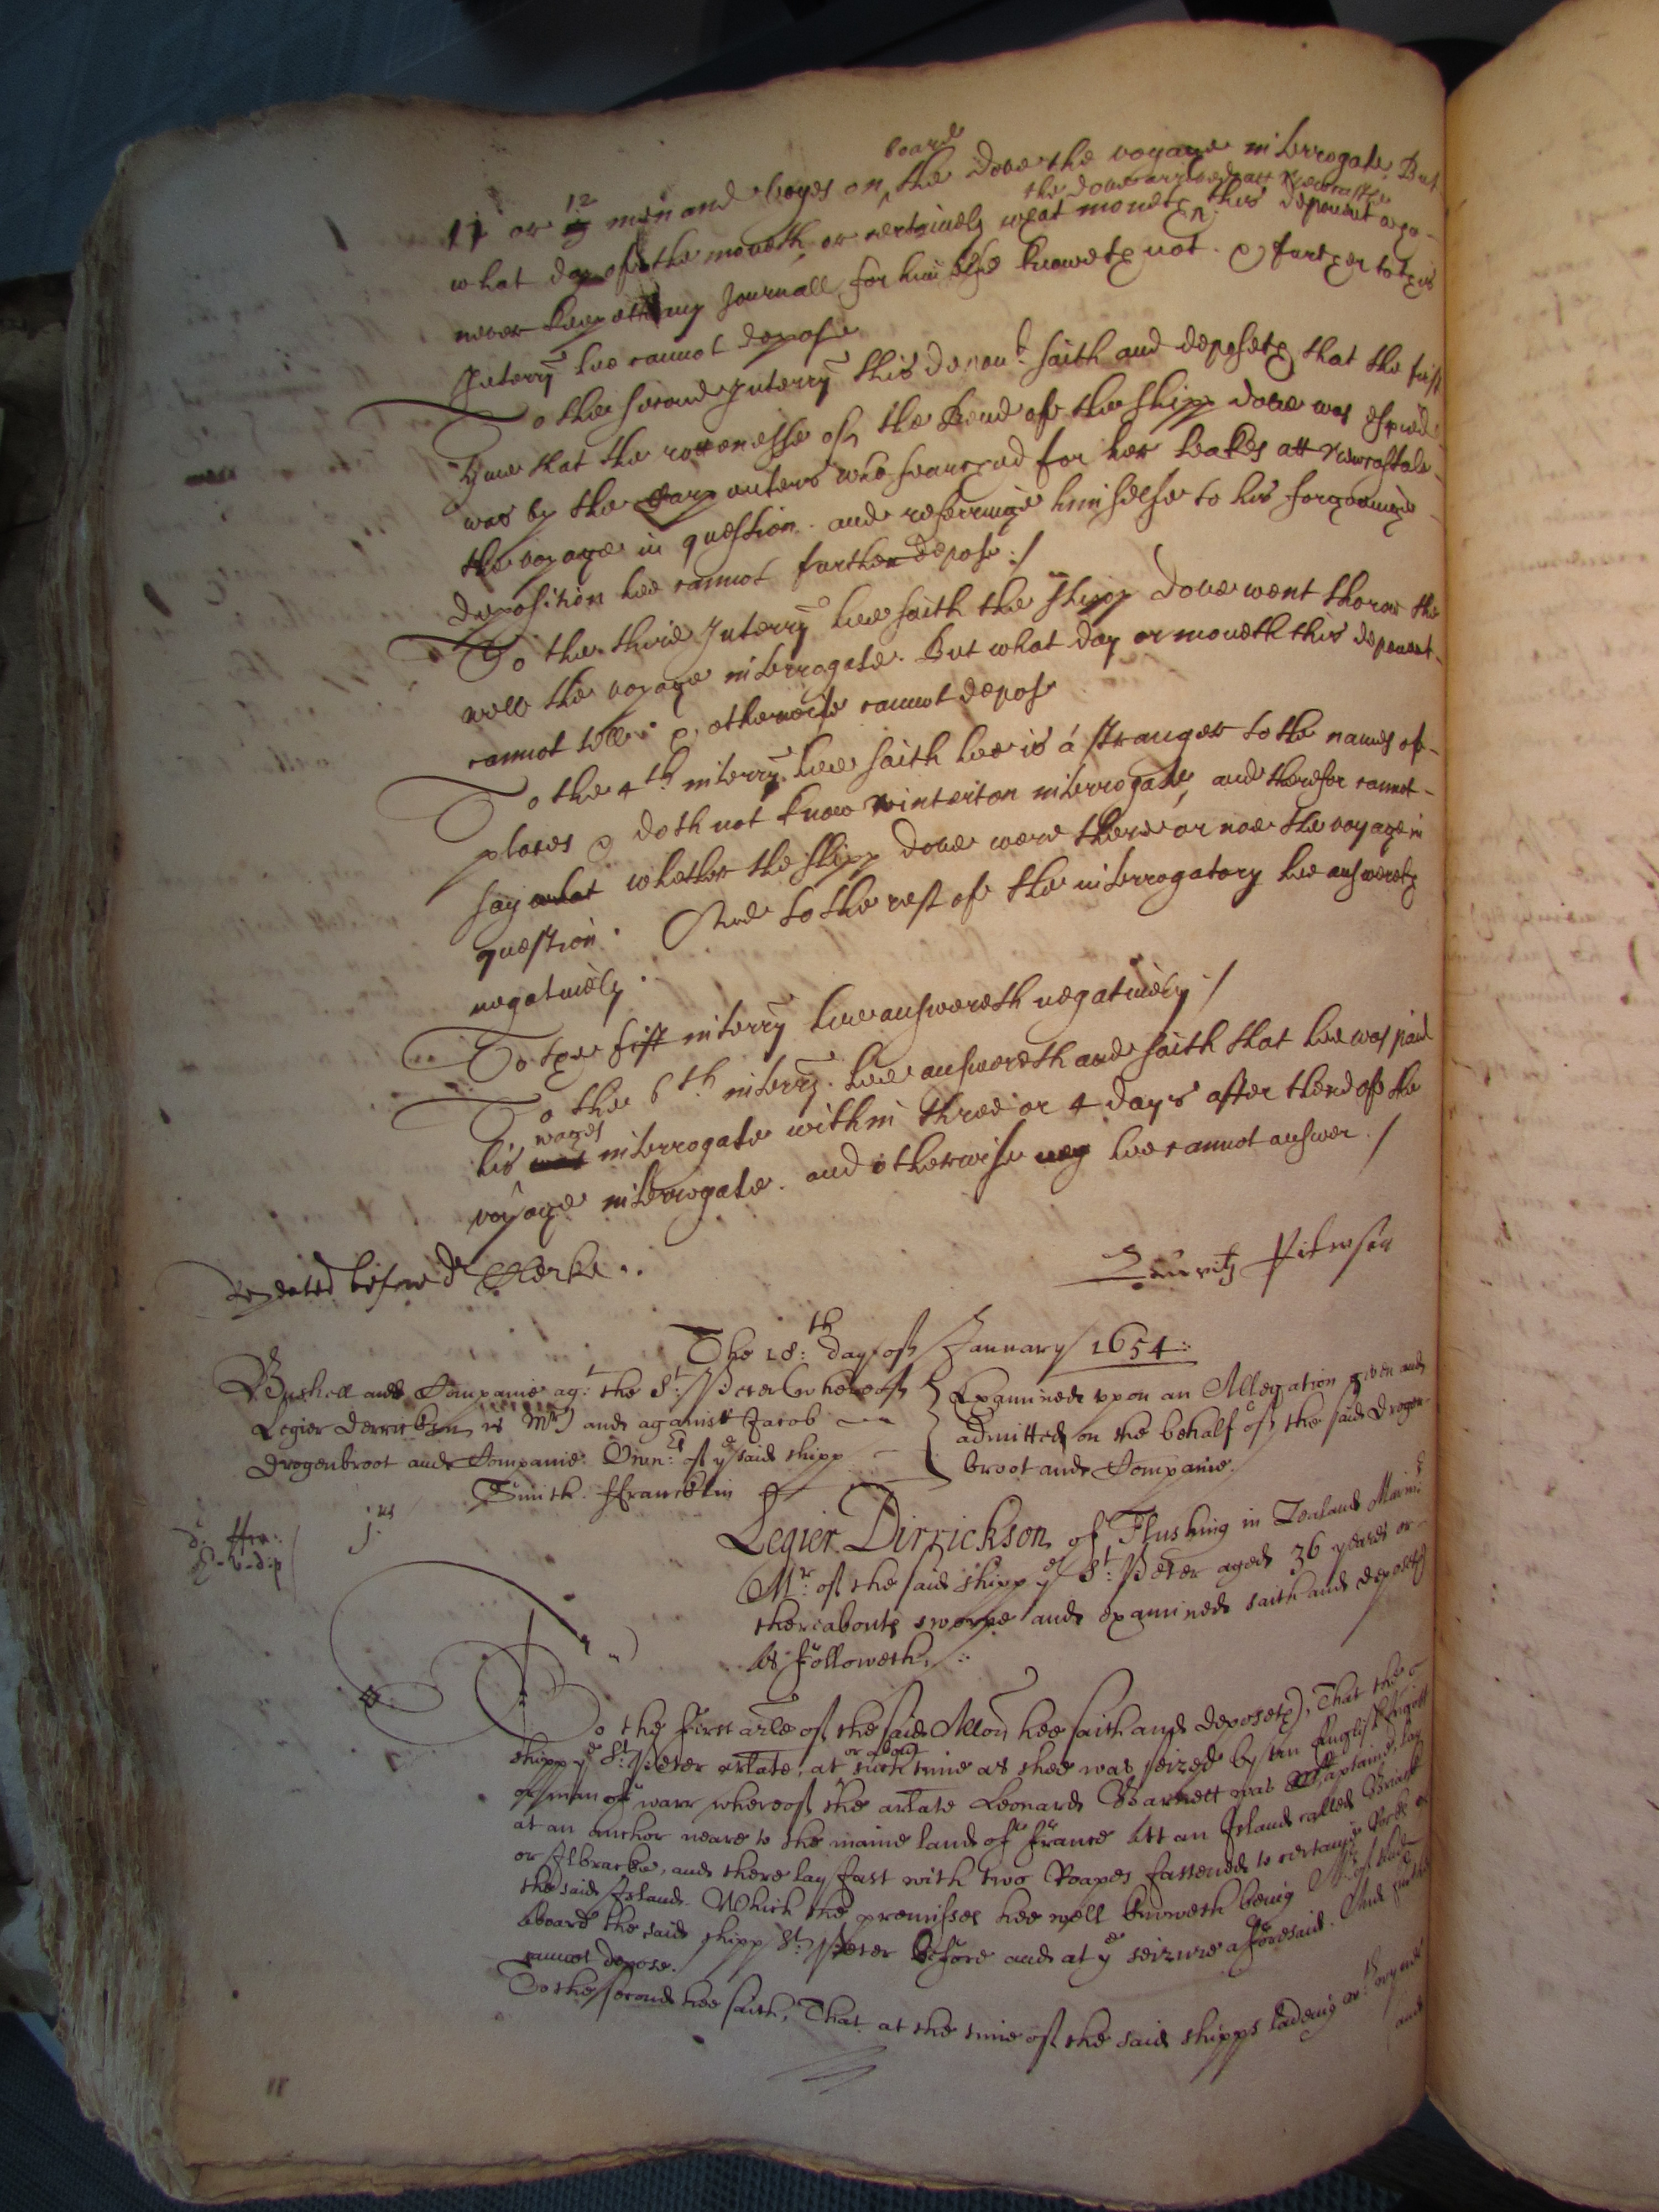 board
11 or 12 men and boyes on the Dove the voyage interrogate. But
the dove arrived att Newcastle
what day of the moneth, or certainely what moneth this deponent
never keepeth any Journall for himselfe knoweth not. & further to this
Interry hee cannot depose
To the second Interry this depont saith and deposeth that the first
tyme that the rottenesse of the Bend of the shipp Dove was espied
was by the Carpenters who searched for her leakes att Newcastle
the voyage in question. and referringe himselfe to his foregoeinge
deposition hee cannot further depose:/
To the third Interry hee saith the shipp Dove went thorow the
well the voyage interrogate. But what day or moneth this deponent
cannot tell. & otherwise cannot depose
To the 4th interry. hee saith hee is a stranger to the names of
places & doth not know Winterton interrogate, and therefor cannot
say what whether the shipp Dove were there or noe the voyage in
question. And to the rest of the interrogatory hee answereth
negatively.
To the fift interry hee answereth negatively/
To the 6th interry. hee answereth and saith that hee was paid
wages
his interrogate within three or 4 days after thend of the
voyage interrogate. and otherwise neg hee cannot answer./
Repeated before Dr Clerke..
Lauritz Peterson
The 18:th day of January 1654:
Bushell and Companie agt: the St: Peter whereof
Legier Derrickson is Mr) and against Jacob
Drogenbroot and Companie Own:rs of ye said shipp
Examined upon an Allegation given and
admitted on the behalf of the said Drogen-
broot and Companie.
Smith. ffrancklin
j.us
Legier Dirrickson of Flushing in Zealand Marin:r
Mr: of the said shipp ye St: Peter aged 36 yeares or
thereabouts sworne and examined saith and deposeth
as followeth, :
To the first arle of the said Allon hee saith and deposeth, That the
or about
shipp ye St: Peter arlate, at such time as shee was seized by an English ffrigott
or man of warr whereof the arlate Leonard Barnett was Captaine, lay
at an anchor neare to the maine land of france att an Island called Briack
or Ilbracke, and there lay fast with two Roapes fastened to certayne Rocks of
the said Island. Which the premisses hee well knoweth being Mr: of and
aboard the said shipp St: Peter before and at ye seizure aforesaid. And further
cannot depose.
To the second hee saith, That at the time of the said shipps ladeing
and